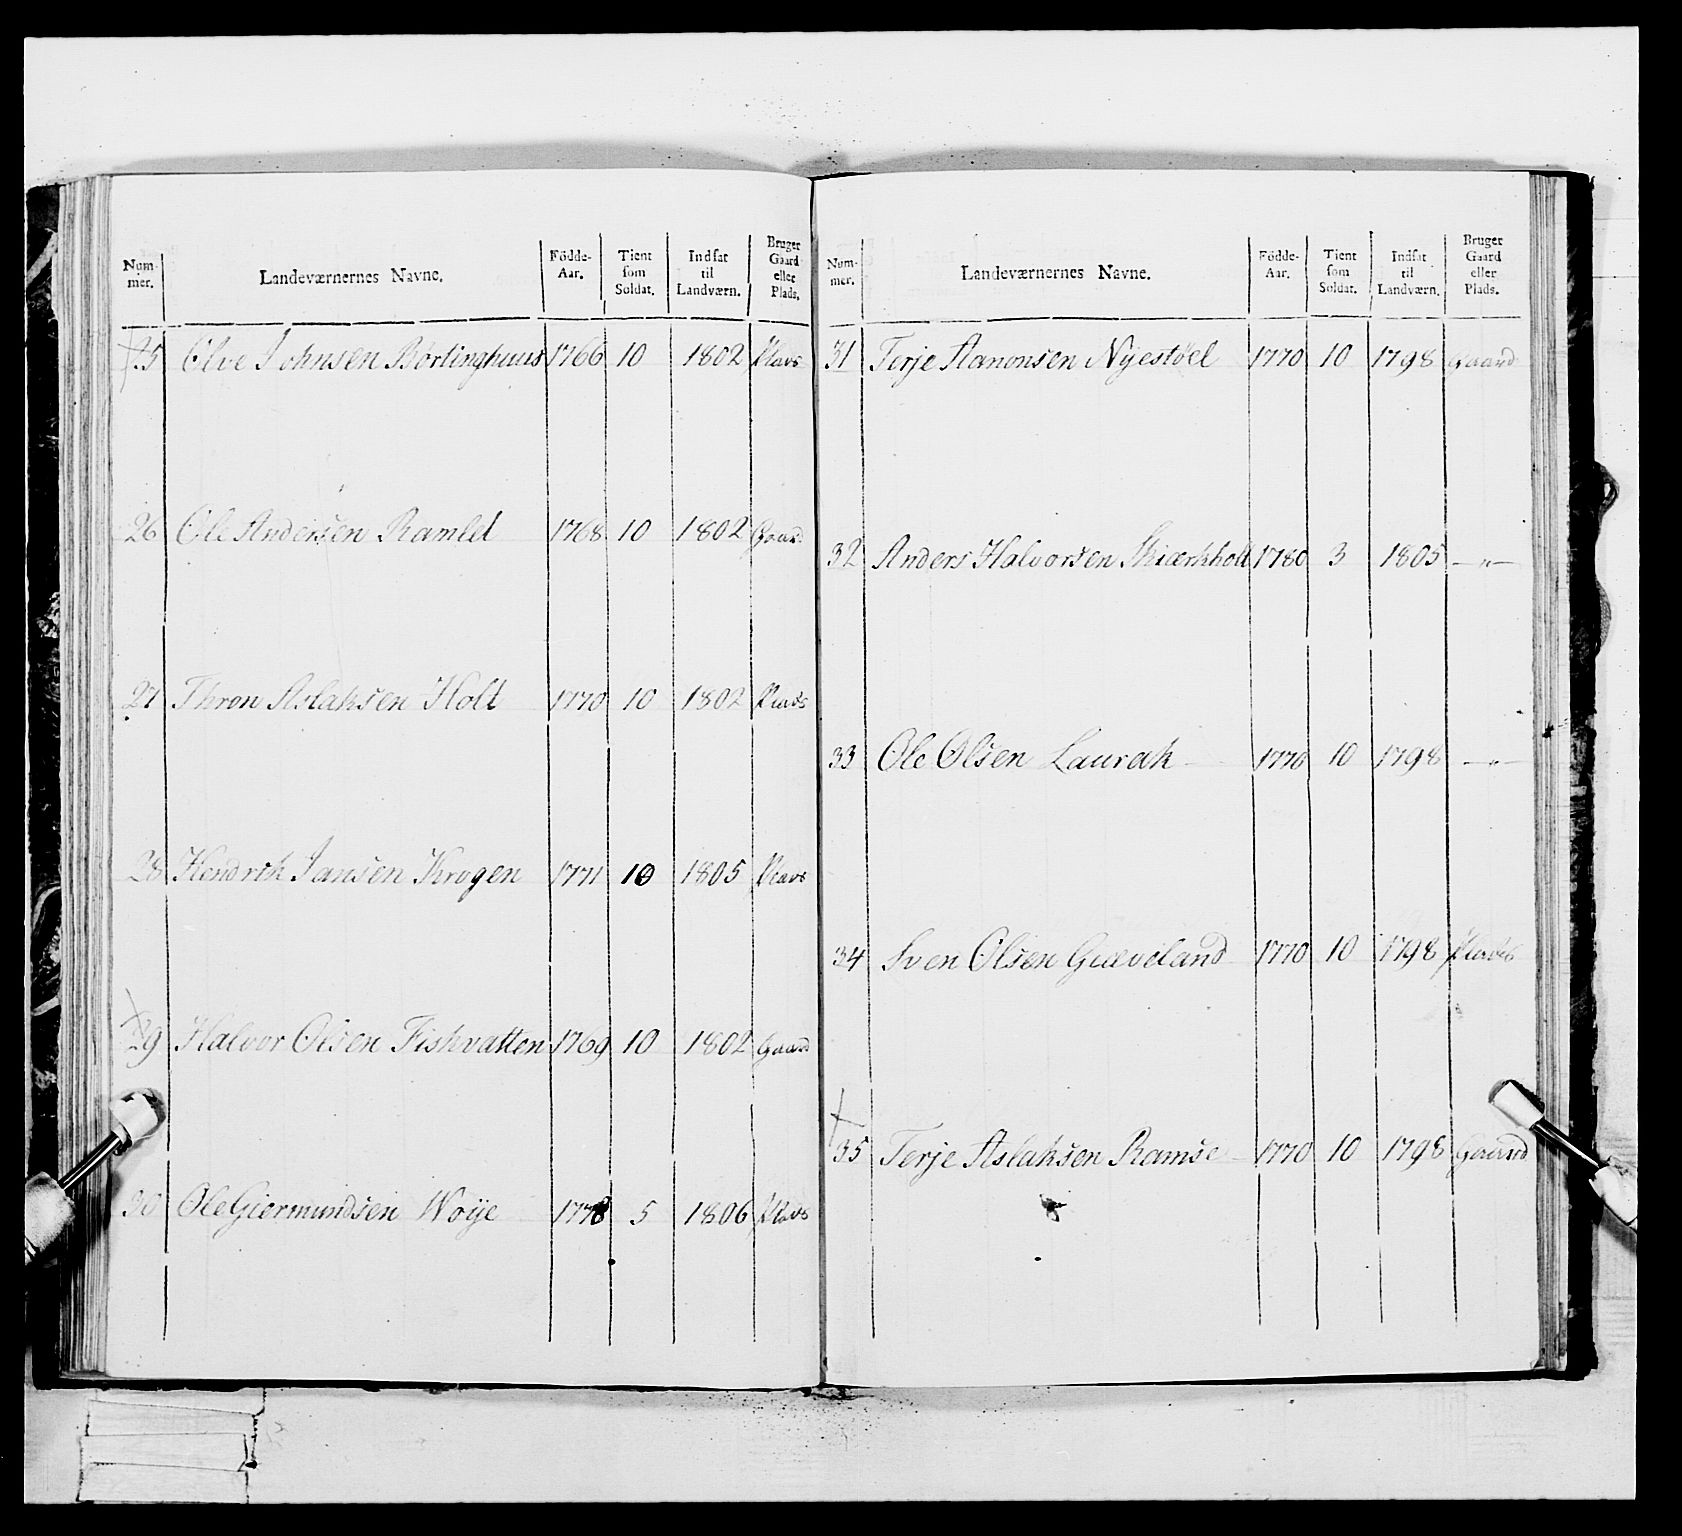 Num-
mer.
Landeværnernes Navne.
Födde-
Aar.
Tient
som
Soldat.
Indsat
til
Landværn.
Bruger
Gaard
eller
Plads.
25 Olve Johnsen Børtinghuus 1766 10 1802 Plads
26 Ole Andersen Ramlet 1768 10 1802 Gaard
27 Thron Aslaksen Holt 1770 10 1802 Plads
28 Hendrik Jansen Krogen 1771 10 1805 Plads
29 Halvor Olsen Fiskvatten 1769 10 1802 Gaard
30 Ole Giermundsen Woije 1778 5 1806 Plads
Num-
mer.
Landeværnernes Navne.
Födde-
Aar.
Tient
som
Soldat.
Indsat
til
Landværn.
Bruger
Gaard
eller
Plads.
31 Terje Aanonsen Nyestøel 1770 10 1798 Gaard
32 Anders Halvorsen Skiærkholt 1780 3 1805 —"—
33 Ole Olsen Laurak 1770 10 1798 —"—
34 Sven Olsen Græveland 1770 10 1798 Plads
35 Terje Aslaksen Ramse 1770 10 1798 Gaard